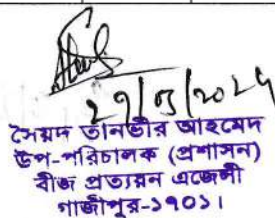 সৈয়দ তানভীর আহমেদ
উপ-পরিচালক (প্রশাসন)
বীজ প্রত্যয়ন এজেন্সী
গাজীপুর-১৭০১।